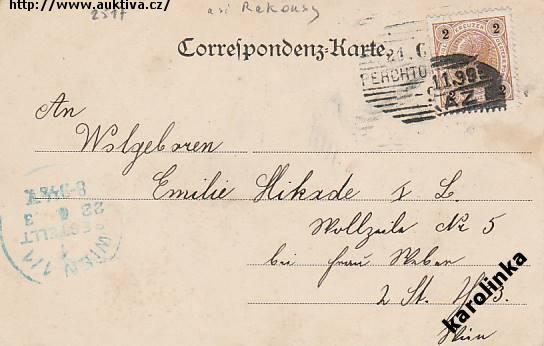 http://www.auktiva.cz/
2517
asi Rakousy
Correspondenz-Karte.
2 KREUZER 2
2 2
21.6
PERCHTO
11.99
AZ
An
Wolgeboren
Emilie Hikade
Wollzeile Nr 5
bei Frau Weber
2 St. 3.
Wien
WIEN 1/1
BESTELLT
karolinka